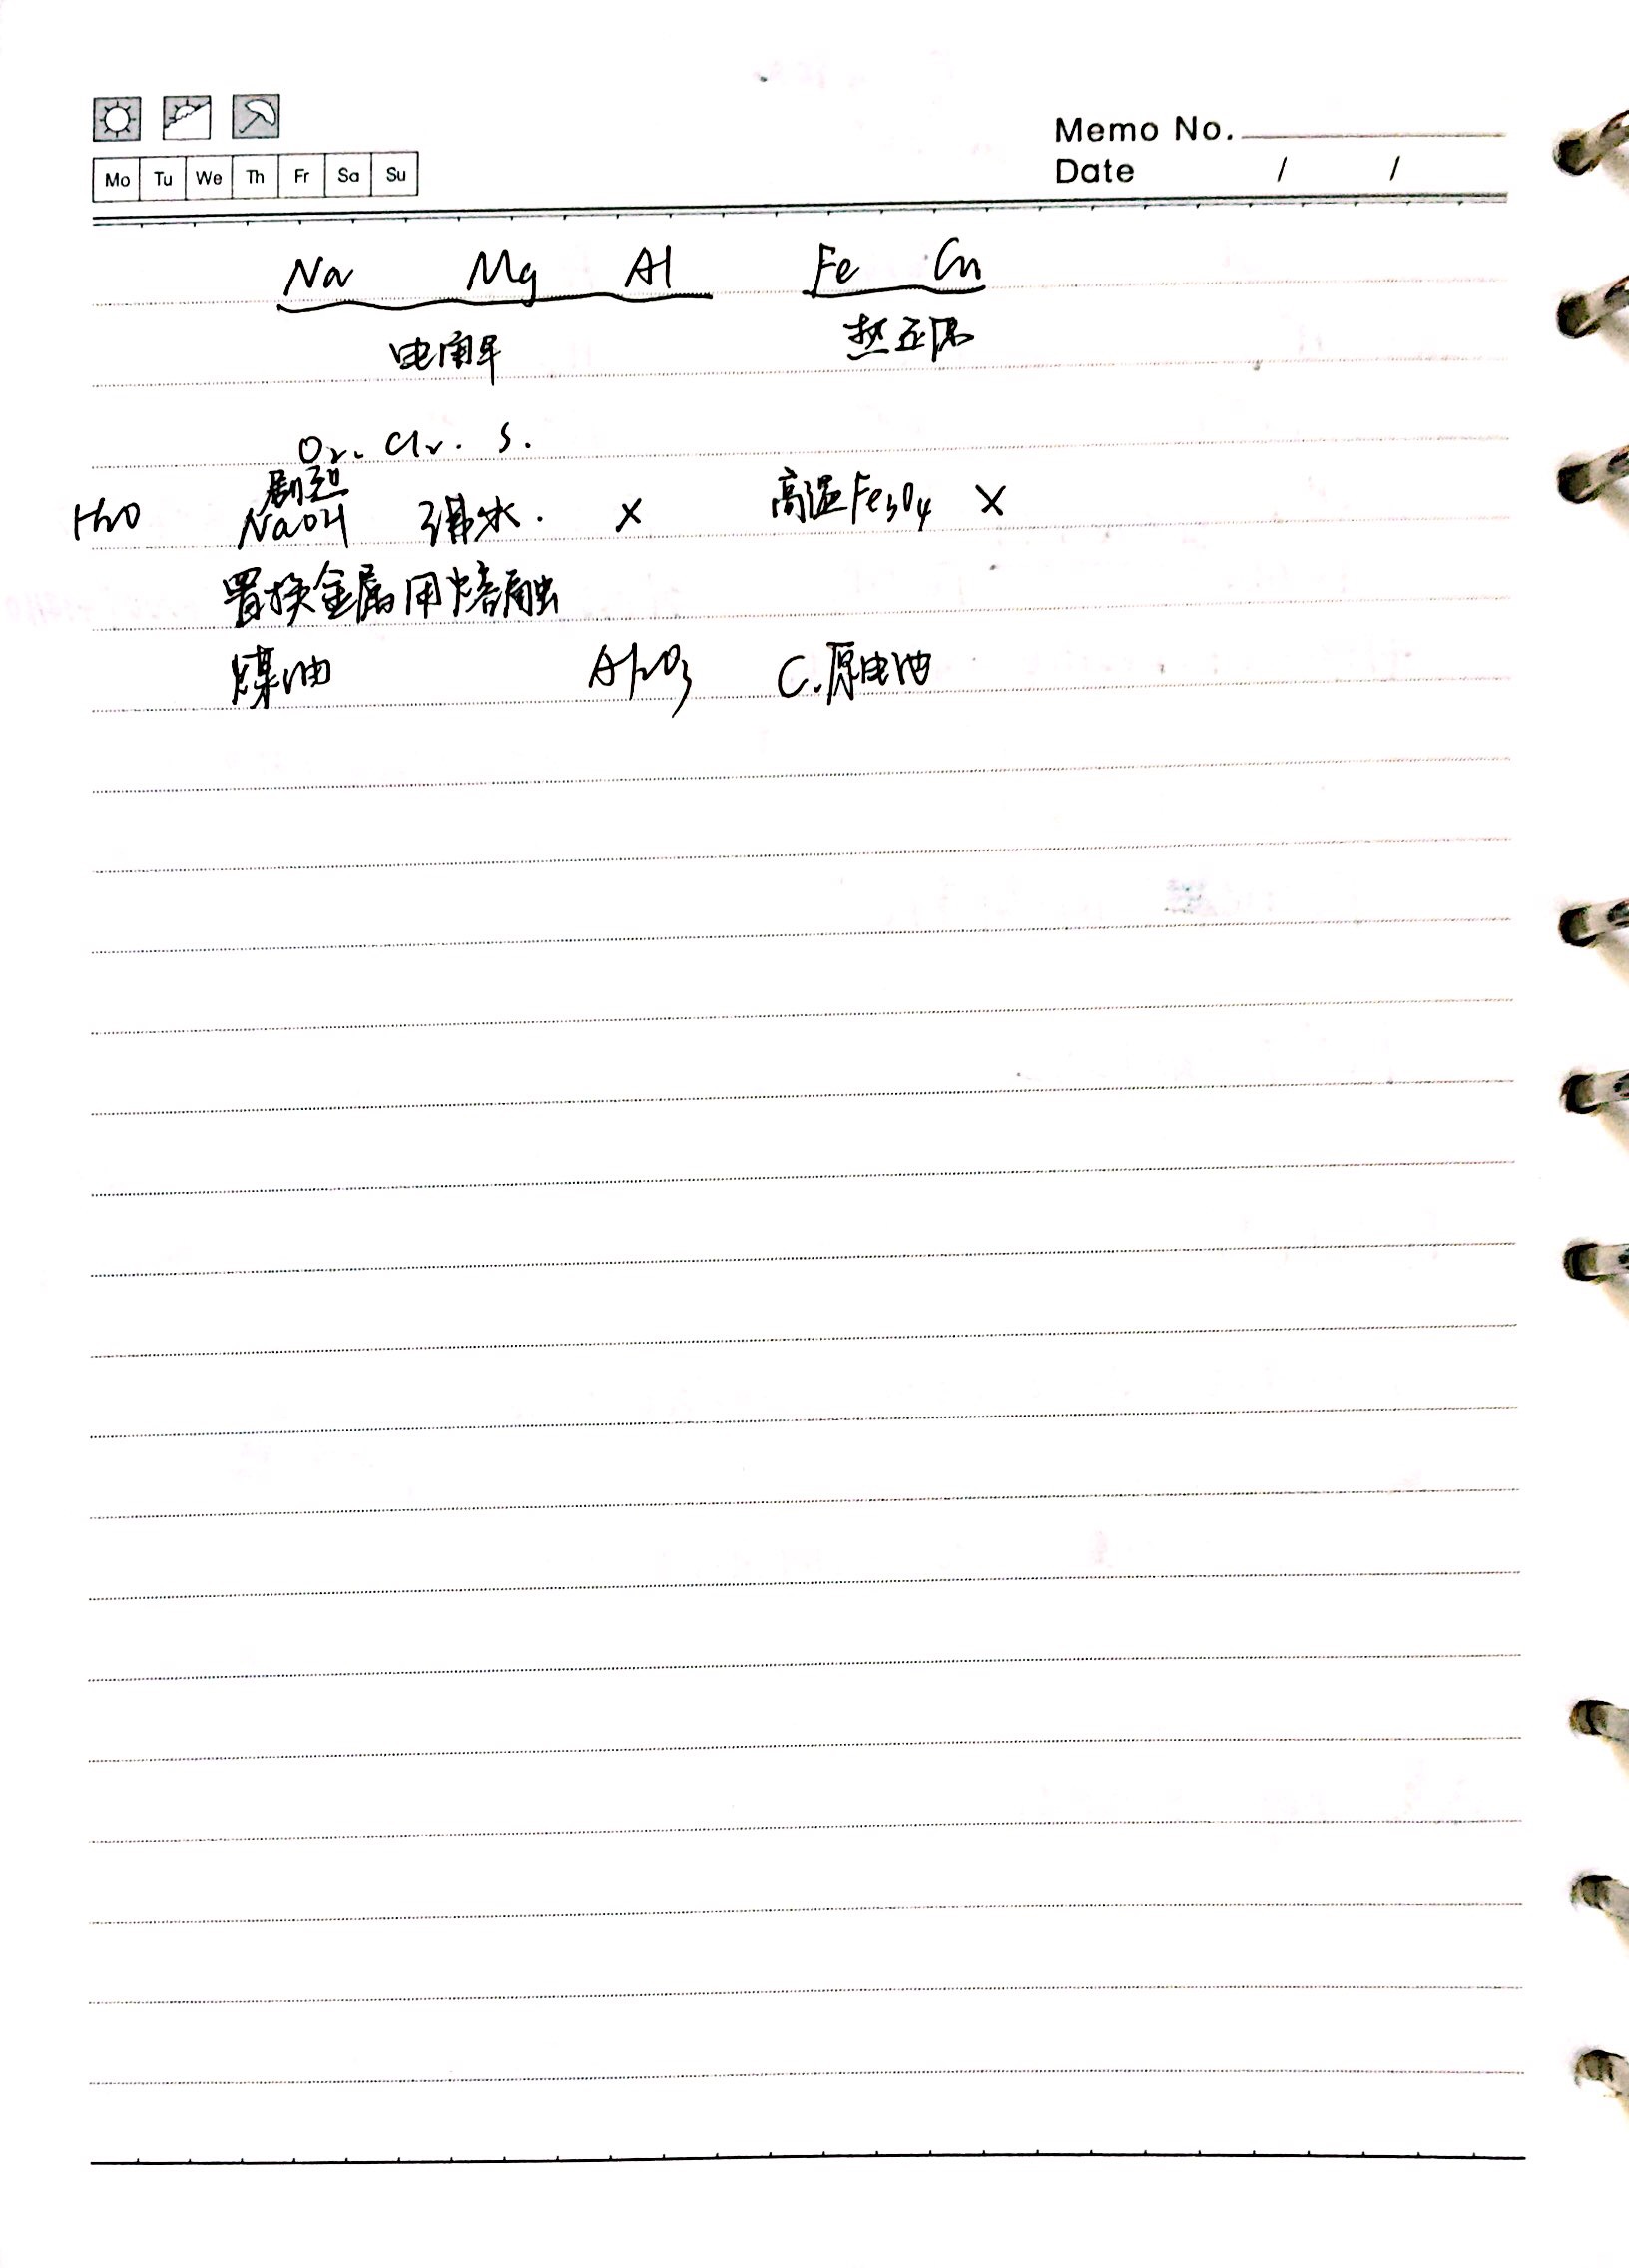 Memo No.
Mo Tu We Th Fr Sa Su
Date / /
Na Mg Al Fe Cu
电解 热还原
O₂. Cl₂. S.
剧烈
H₂O NaOH 沸水. × 高温Fe₃O₄ ×
置换金属用熔融
煤油 Al₂O₃ C.原电池